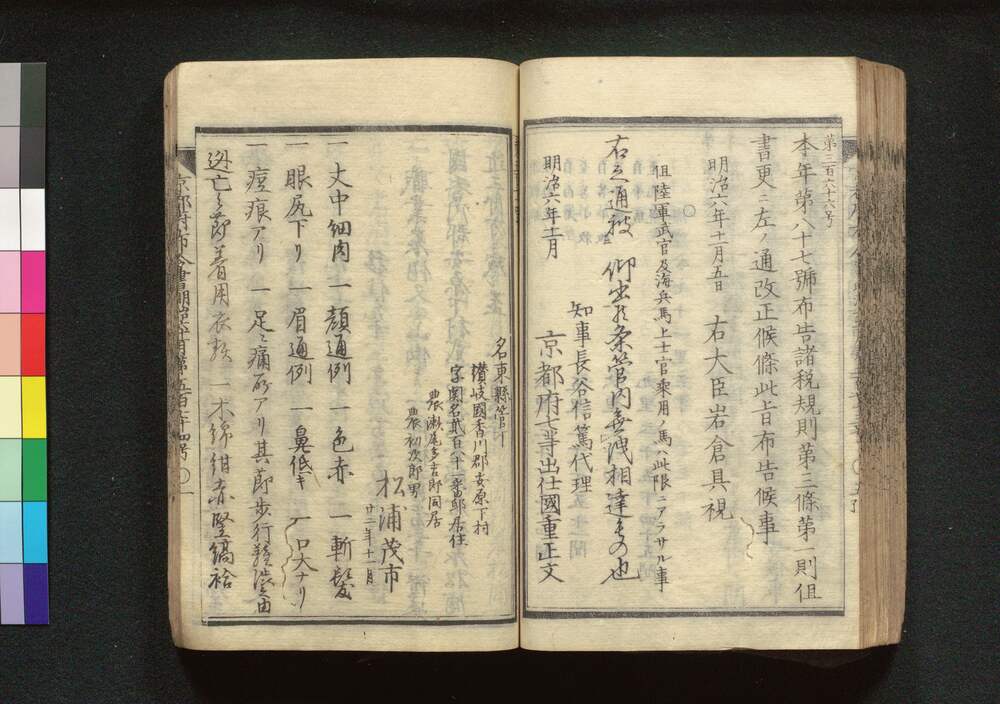 第三百六十六号
本年第八十七號布告諸税規則第三條第一則但
書更ニ左ノ通改正候條此旨布告候事
明治六年十一月五日 右大臣岩倉具視
○
但陸軍武官及海兵馬上士官乗用ノ馬ハ此限ニアラサル事
右之通被 仰出候条管内無洩相達るもの也
明治六年十一月 知事長谷信篤代理
京都府七等出仕國重正文
名東縣管下
讃岐國香川郡安原下村
字関名貳百八十二番邸居住
農瀬尾多吉郎同居
農初次郎男
松浦茂市
廿二年十一月
一 丈中細肉 一 顔通例 一 色赤 一 斬髪
一 眼尻下リ 一 眉通例 一 鼻低キ 一 口大ナリ
一 痘痕アリ 一 足ニ痛所アリ其節歩行難渋之由
逃亡之節着用衣類 一 木綿紺赤竪縞袷
京都府布令書明治六年第五百六十四号 ○ 一